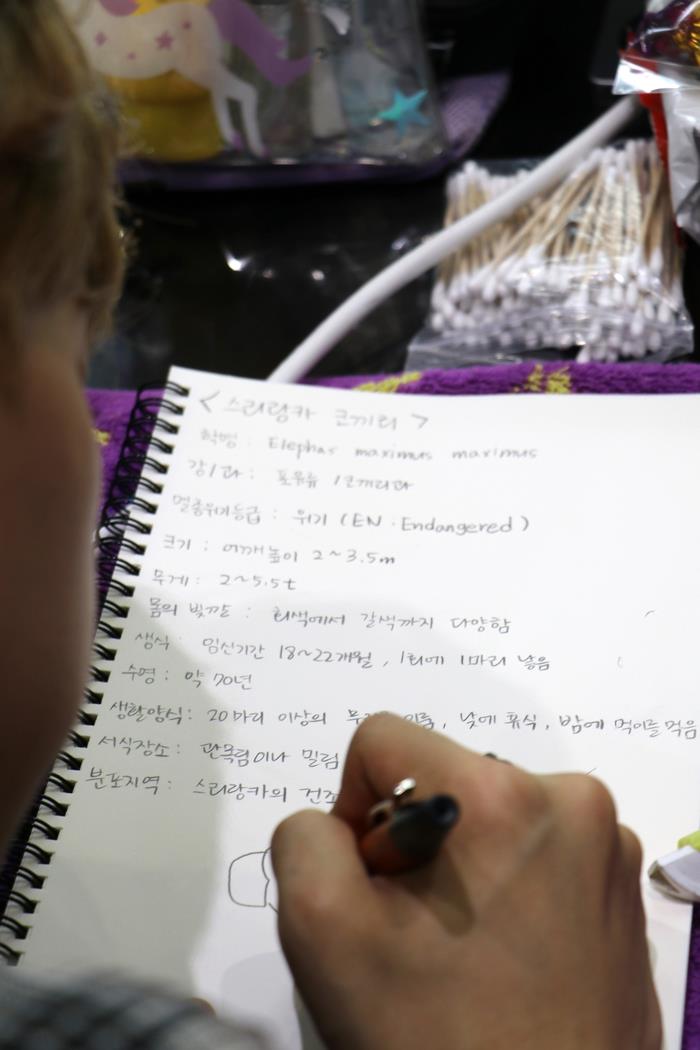 < 스리랑카 코끼리 >
학명 : Elephas maximus maximus
강/과 : 포유류 / 코끼리과
멸종위기등급 : 위기 (EN : Endangered)
크기 : 어깨높이 2~3.5m
무게 : 2~5.5t
몸의 빛깔 : 회색에서 갈색까지 다양함
생식 : 임신기간 18~22개월, 1회에 1마리 낳음
수명 : 약 70년
생활양식 : 20마리 이상의 이룸, 낮에 휴식, 밤에 먹이를 먹음
서식장소 : 관목림이나 밀림
분포지역 : 스리랑카의 건조